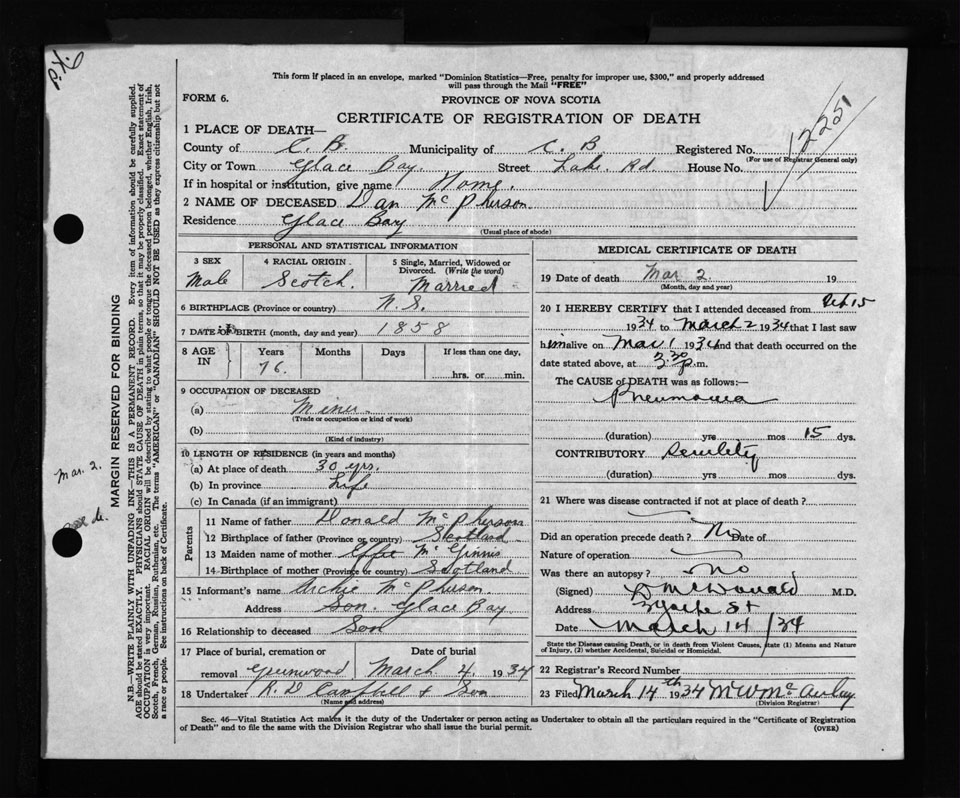 This form if placed in an envelope, marked "Dominion Statistics—Free, penalty for improper use, $300," and properly addressed
will pass through the Mail "FREE"
FORM 6.
PROVINCE OF NOVA SCOTIA
CERTIFICATE OF REGISTRATION OF DEATH
12251
1 PLACE OF DEATH—
County of C. B. Municipality of C. B Registered No.
(For use of Registrar General only)
City or Town Glace Bay. Street Lake Rd House No.
If in hospital or institution, give name Home.
2 NAME OF DECEASED Dan McPherson.
Residence Glace Bay
(Usual place of abode)
PERSONAL AND STATISTICAL INFORMATION
3 SEX 4 RACIAL ORIGIN 5 Single, Married, Widowed or
Divorced. (Write the word)
Male Scotch. Married
6 BIRTHPLACE (Province or country) N.S.
7 DATE OF BIRTH (month, day and year) 1858
8 AGE IN Years Months Days If less than one day,
76. hrs. or min.
9 OCCUPATION OF DECEASED
(a) Miner
(Trade or occupation or kind of work)
(b)
(Kind of industry)
10 LENGTH OF RESIDENCE (in years and months)
(a) At place of death 30 yrs.
(b) In province Life
(c) In Canada (if an immigrant)
Parents
11 Name of father Donald McPherson
12 Birthplace of father (Province or country) Scotland
13 Maiden name of mother Effie McGinnis
14 Birthplace of mother (Province or country) Scotland
15 Informant's name Archie McPherson
Address Son. Glace Bay
16 Relationship to deceased Son
17 Place of burial, cremation or Date of burial
removal Greenwood March 4 1934
18 Undertaker R. D Campbell & Son
(Name and address)
MEDICAL CERTIFICATE OF DEATH
19 Date of death Mar 2. 19
(Month, day and year)
20 I HEREBY CERTIFY that I attended deceased from Feb 15
1934 to March 2 1934 that I last saw
him alive on Mar 1 1934 and that death occurred on the
date stated above, at 3.30 p.m.
The CAUSE of DEATH was as follows:—
Pneumonia
(duration) yrs mos 15 dys.
CONTRIBUTORY Senility
(duration) yrs mos dys.
21 Where was disease contracted if not at place of death?
Did an operation precede death? No Date of
Nature of operation
Was there an autopsy? No
(Signed) D McDonald M.D.
Address Yorke St
Date March 14/34
State the Disease causing Death, or in death from Violent Causes, state (1) Means and Nature
of Injury, (2) whether Accidental, Suicidal or Homicidal.
22 Registrar's Record Number
23 Filed March 14th 1934 McAulay
(Division Registrar)
Sec. 46—Vital Statistics Act makes it the duty of the Undertaker or person acting as Undertaker to obtain all the particulars required in the "Certificate of Registration
of Death" and to file the same with the Division Registrar who shall issue the burial permit.
(OVER)
MARGIN RESERVED FOR BINDING
N.B.—WRITE PLAINLY WITH UNFADING INK—THIS IS A PERMANENT RECORD. Every item of information should be carefully supplied.
AGE should be stated EXACTLY. PHYSICIANS should STATE CAUSE OF DEATH in plain terms, so that it may be properly classified. Exact statement of
OCCUPATION is very important. RACIAL ORIGIN will be described by stating to what people or tongue the deceased person belonged, whether English, Irish,
Scotch, French, German, Russian, Ruthenian, etc. The terms "AMERICAN" or "CANADIAN" SHOULD NOT BE USED as they express citizenship but not
a race or people. See instructions on back of Certificate.
Mar. 2.